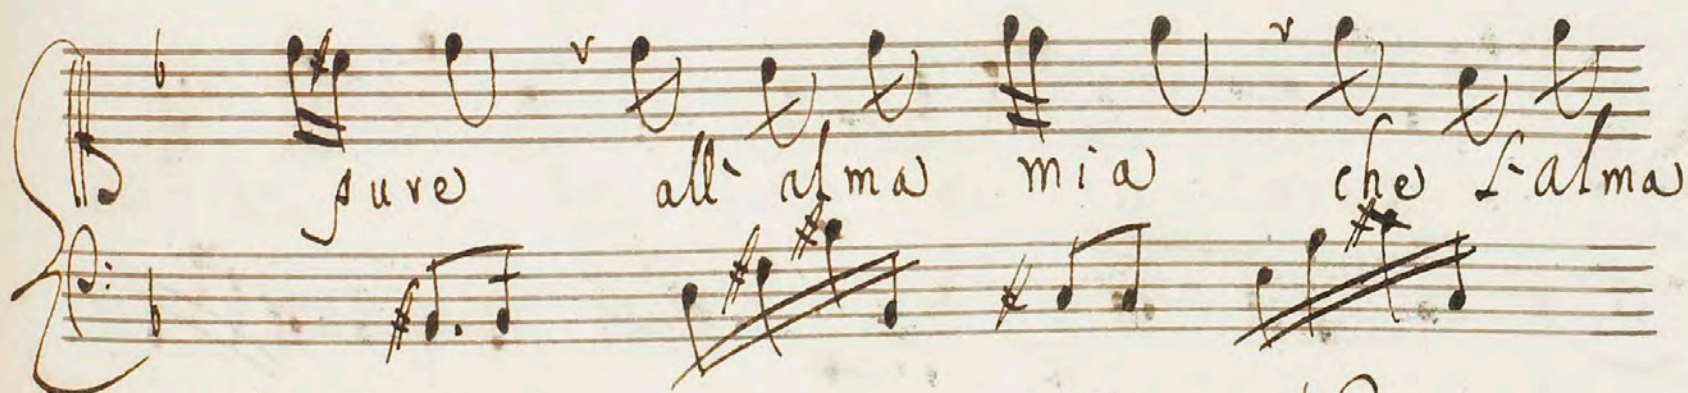 pure all' alma mia che l'alma